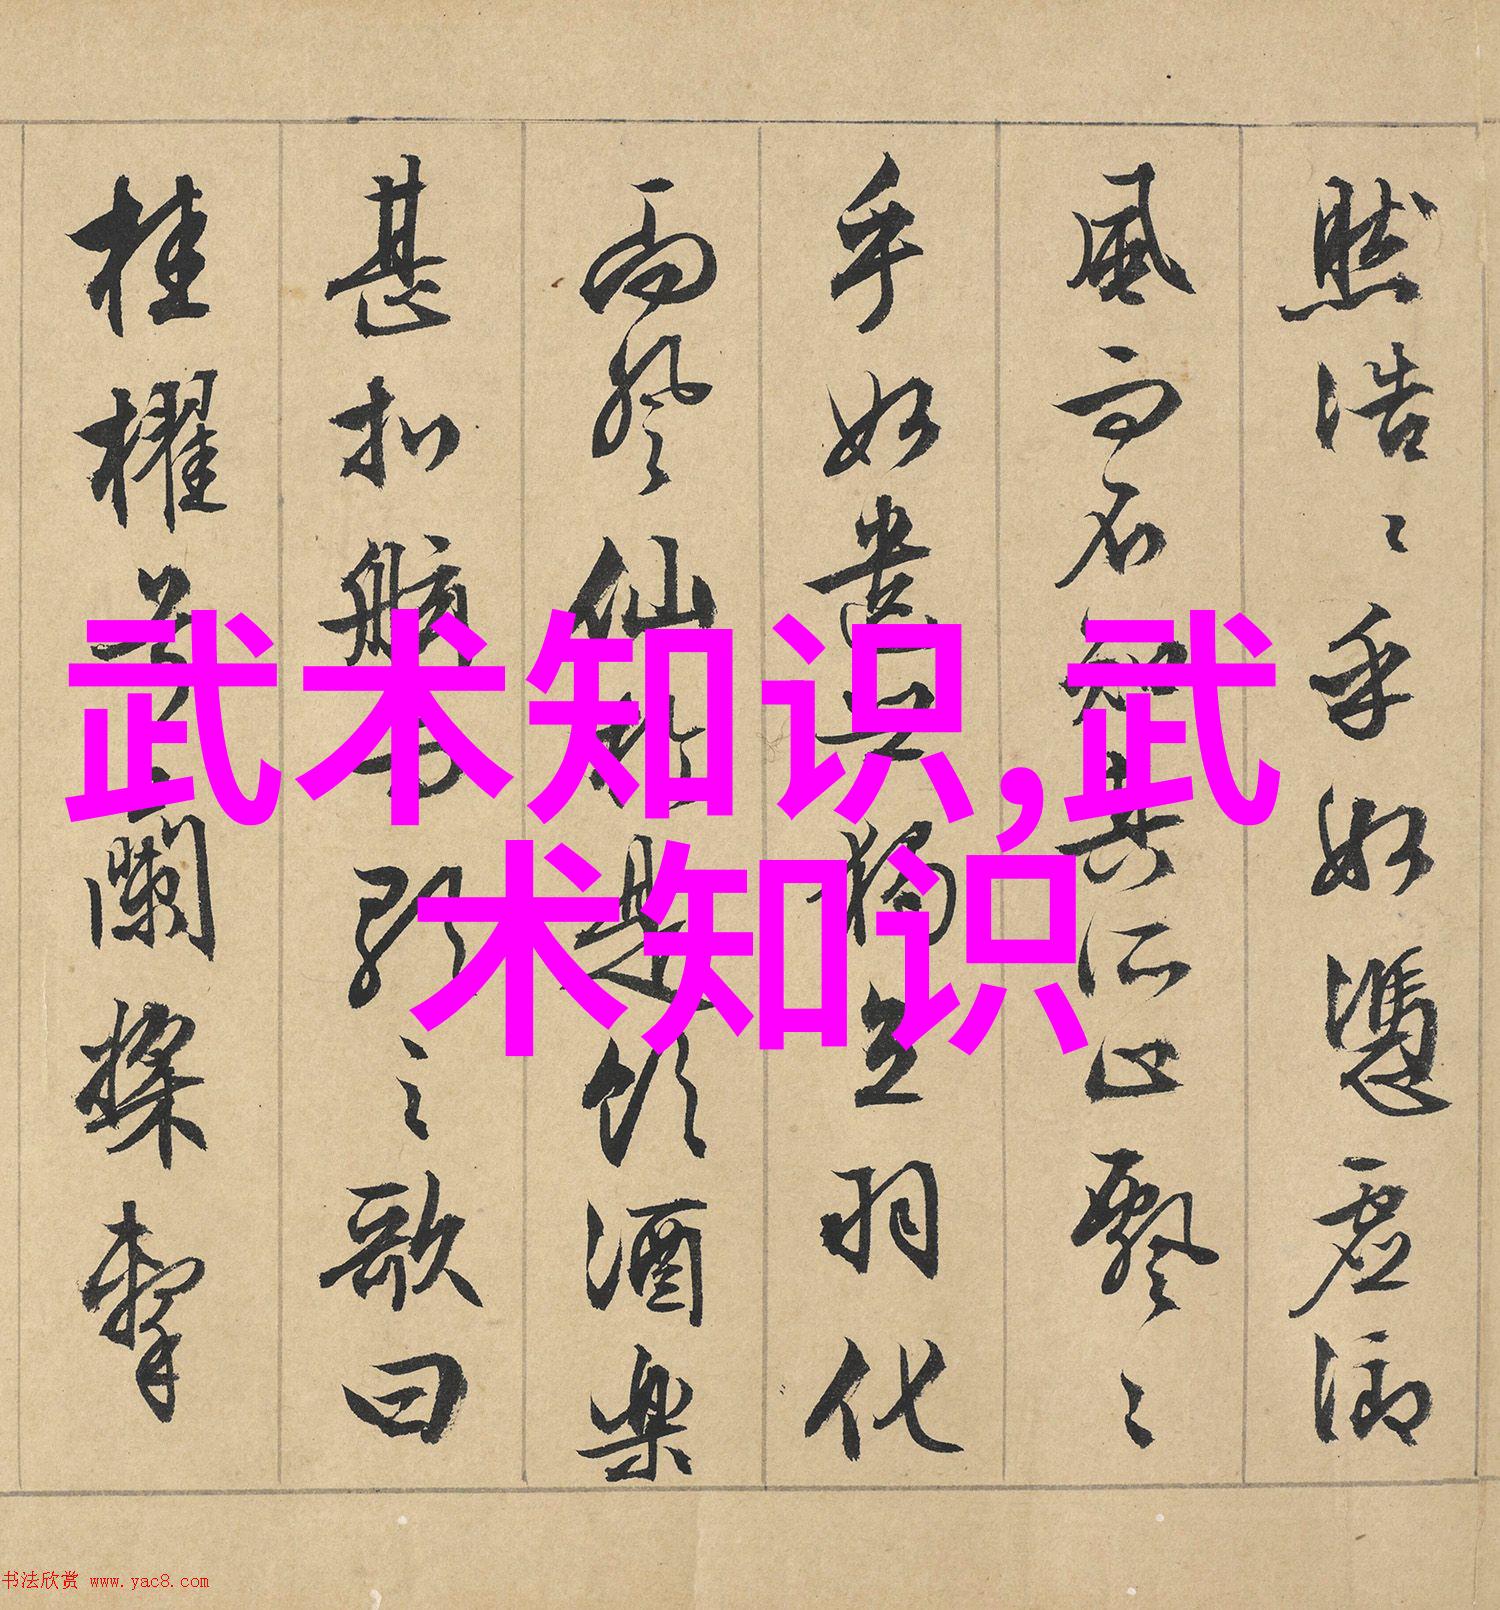 然浩〻乎如憑虚御
風而不知其所止飄〻
乎如遺世獨立羽化
而登仙於是飲酒樂
甚扣舷而歌之歌曰
桂櫂兮蘭槳擊
武术知识,武
术知识
书法欣赏 www.yac8.com